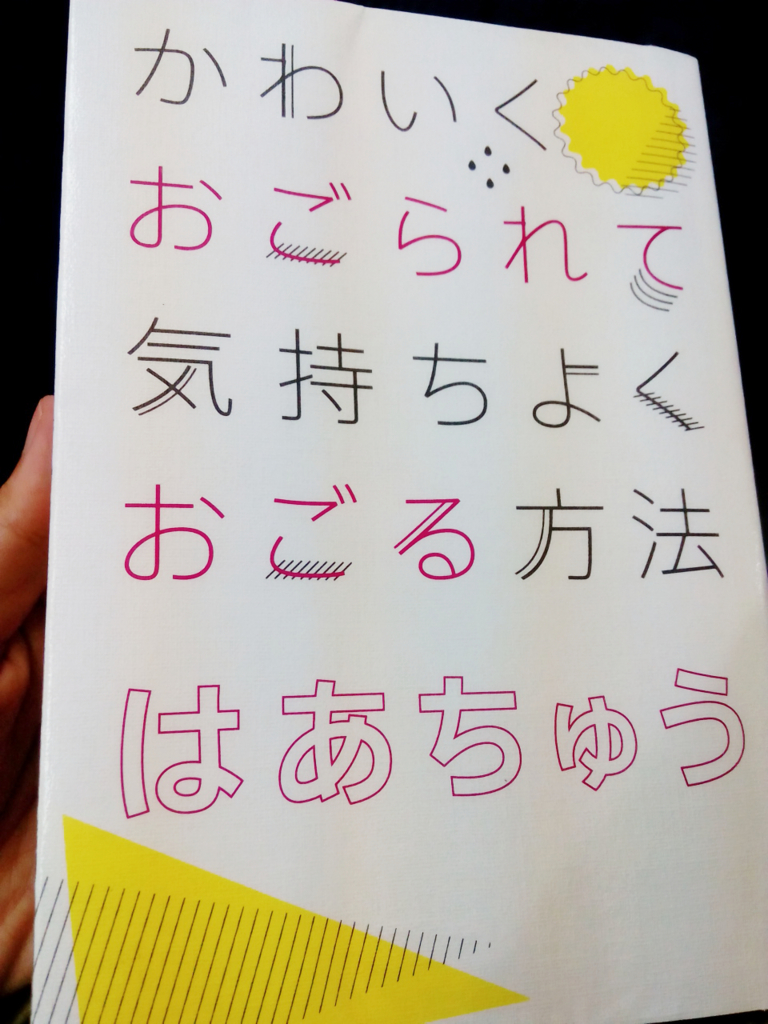 かわいく
おごられて
気持ちよく
おごる方法
はあちゅう